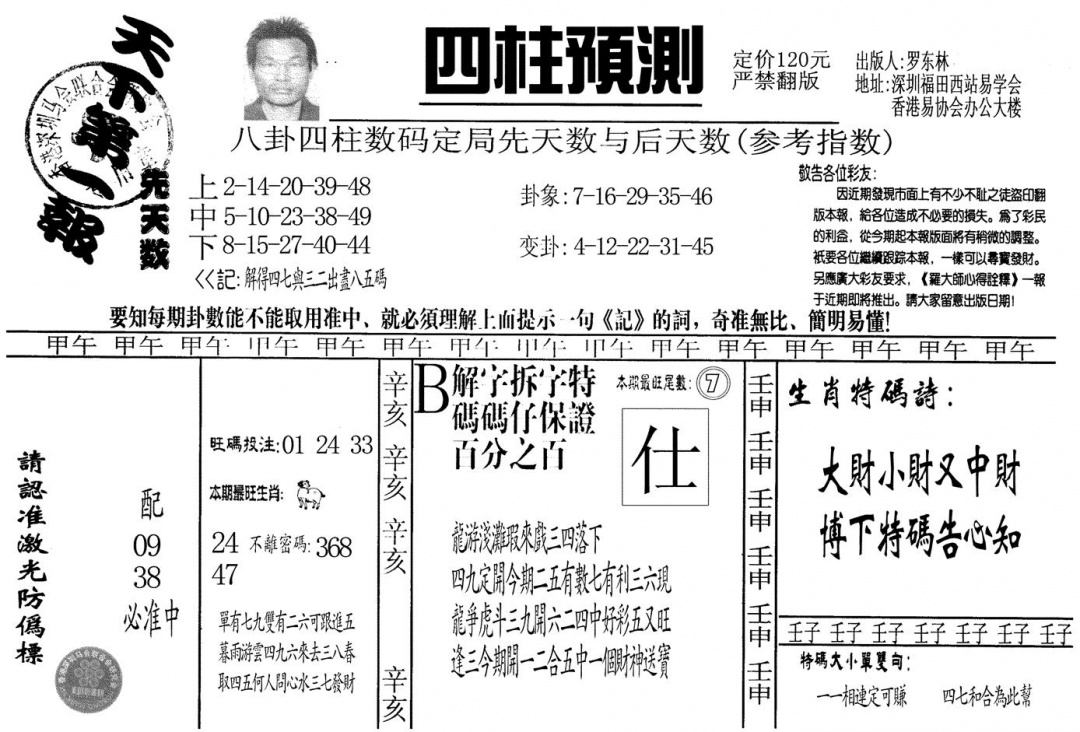 天下第一報
四柱預測
定价120元
严禁翻版
出版人:罗东林
地址:深圳福田西站易学会
香港易协会办公大楼
八卦四柱数码定局先天数与后天数(参考指数)
先天数
上 2-14-20-39-48
中 5-10-23-38-49
下 8-15-27-40-44
<<記:解得四七與三二出盡八五碼
卦象:7-16-29-35-46
变卦:4-12-22-31-45
敬告各位彩友:
因近期發現市面上有不少不耻之徒盗印翻
版本報,給各位造成不必要的損失。爲了彩民
的利益,從今期起本報版面將有稍微的調整。
衹要各位繼續跟踪本報,一樣可以尋寶發財。
另應廣大彩友要求,《羅大師心得詮釋》一報
于近期即將推出。請大家留意出版日期!
要知每期卦數能不能取用准中、就必須理解上面提示一句《記》的詞,奇准無比、簡明易懂!
甲午 甲午 甲午 甲午 甲午 甲午 甲午 甲午 甲午 甲午 甲午 甲午 甲午 甲午 甲午
請認准激光防僞標
配
09
38
必准中
旺碼投注:01 24 33
本期最旺生肖:
24 不離密碼:368
47
單有七九雙有二六可跟進五
暮雨游雲四九六來去三八春
取四五何人問心水三七發財
辛亥
辛亥
辛亥
辛亥
B解字拆字特
碼碼仔保證
百分之百
本期最旺尾數:7
仕
龍游淺灘瑕來戲三四落下
四九定開今期二五有數七有利三六現
龍爭虎斗三九開六二四中好彩五又旺
逢三今期開一二合五中一個財神送寶
壬申
壬申
壬申
壬申
壬申
壬申
生肖特碼詩:
大財小財又中財
博下特碼告必知
壬子 壬子 壬子 壬子 壬子 壬子 壬子
特碼大小單雙句:
一一相連定可賺 四七和合為此幫